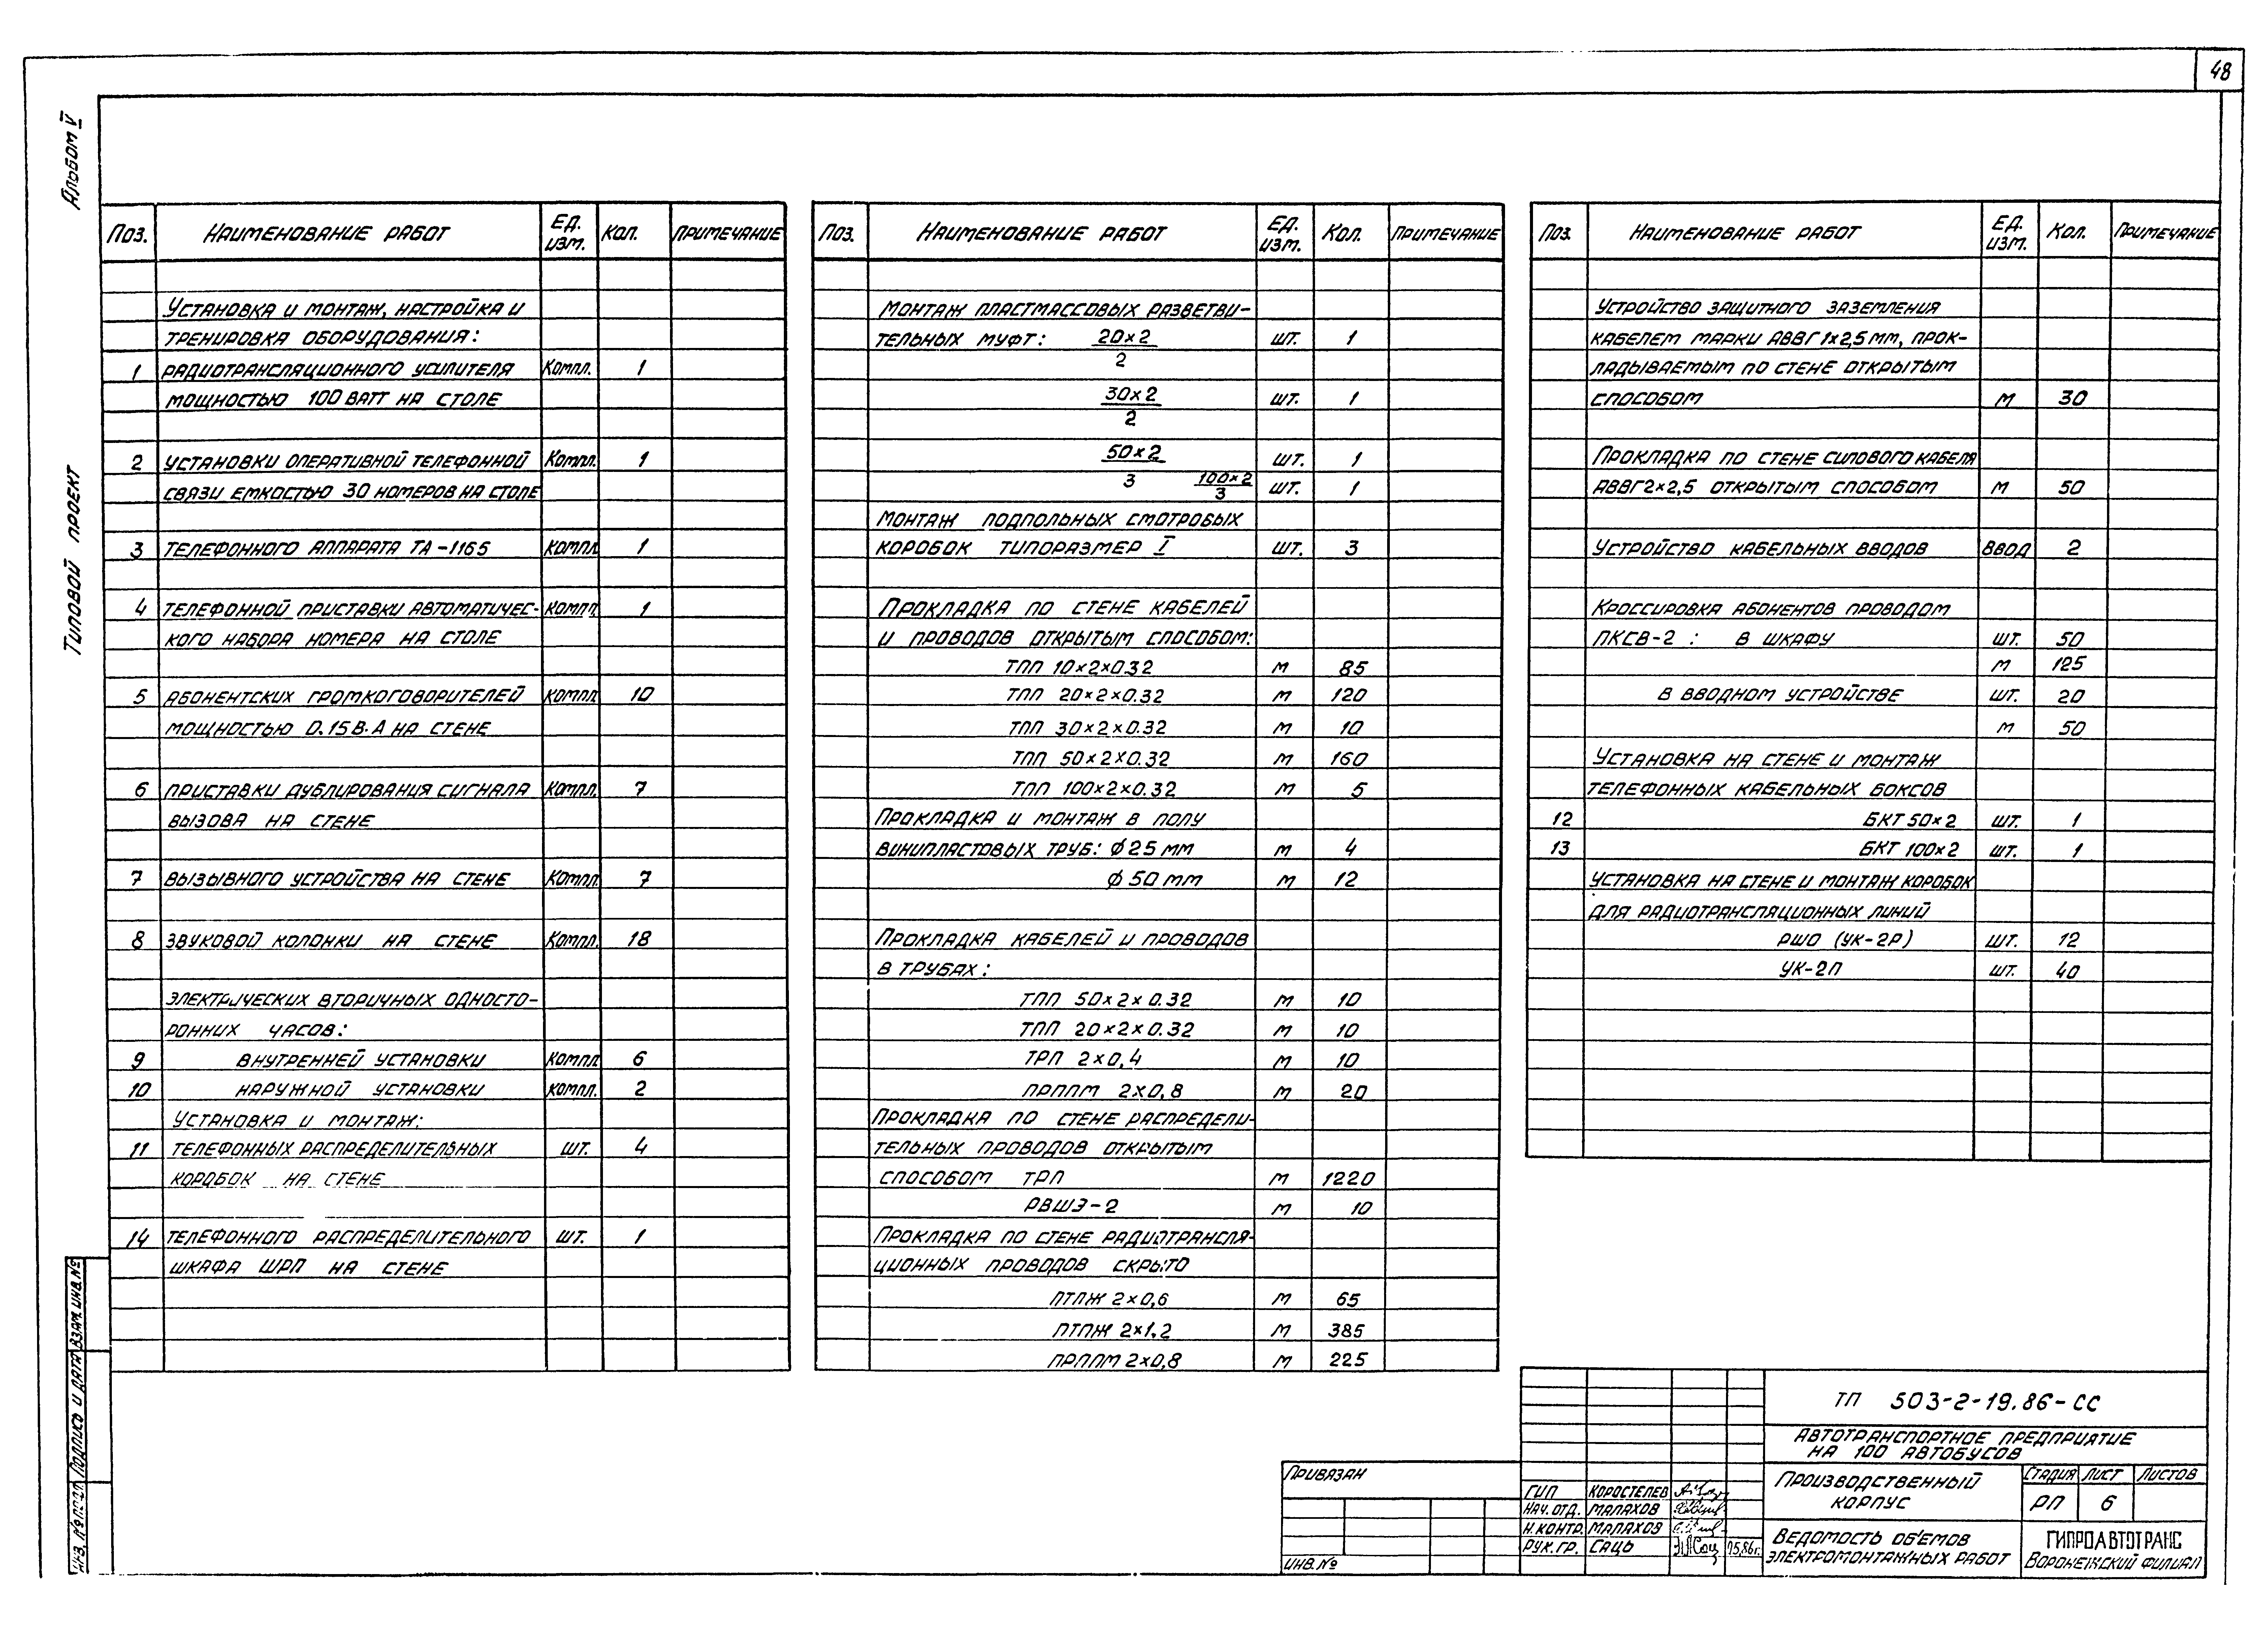 48
Альбом V
Типовой проект
Поз. Наименование работ Ед. изм. Кол. Примечание
Установка и монтаж, настройка и
тренировка оборудования:
1 радиотрансляционного усилителя Компл. 1
мощностью 100 ватт на столе
2 установки оперативной телефонной Компл. 1
связи емкостью 30 номеров на столе
3 телефонного аппарата ТА-1165 компл 1
4 телефонной приставки автоматичес- компл. 1
кого набора номера на столе
5 абонентских громкоговорителей компл 10
мощностью 0.15 В·А на стене
6 приставки дублирования сигнала Компл. 7
вызова на стене
7 вызывного устройства на стене Компл. 7
8 звуковой колонки на стене Компл. 18
электрических вторичных односто-
ронних часов:
9 внутренней установки компл 6
10 наружной установки компл. 2
Установка и монтаж:
11 телефонных распределительных шт. 4
коробок на стене
14 телефонного распределительного шт. 1
шкафа ШРП на стене
Поз. Наименование работ Ед. изм. Кол. Примечание
Монтаж пластмассовых разветви-
тельных муфт: 20×2/2 шт. 1
30×2/2 шт. 1
50×2/3 шт. 1
100×2/3 шт. 1
Монтаж подпольных смотровых
коробок типоразмер I шт. 3
Прокладка по стене кабелей
и проводов открытым способом:
ТПП 10×2×0.32 м 85
ТПП 20×2×0.32 м 120
ТПП 30×2×0.32 м 10
ТПП 50×2×0.32 м 160
ТПП 100×2×0.32 м 5
Прокладка и монтаж в полу
винипластовых труб: ϕ 25 мм м 4
ϕ 50 мм м 12
Прокладка кабелей и проводов
в трубах:
ТПП 50×2×0.32 м 10
ТПП 20×2×0.32 м 10
ТРП 2×0,4 м 10
ПРППМ 2×0,8 м 20
Прокладка по стене распредели-
тельных проводов открытым
способом ТРП м 1220
РВШЭ-2 м 10
Прокладка по стене радиотрансля-
ционных проводов скрыто
ПТПЖ 2×0,6 м 65
ПТПЖ 2×1.2 м 385
ПРППМ 2×0,8 м 225
Поз. Наименование работ Ед. изм. Кол. Примечание
Устройство защитного заземления
кабелем марки АВВГ 1×2,5 мм, прок-
ладываемым по стене открытым
способом м 30
Прокладка по стене силового кабеля
АВВГ 2×2,5 открытым способом м 50
Устройство кабельных вводов Ввод 2
Кроссировка абонентов проводом
ПКСВ-2: в шкафу шт. 50
м 125
в вводном устройстве шт. 20
м 50
Установка на стене и монтаж
телефонных кабельных боксов
12 БКТ 50×2 шт. 1
13 БКТ 100×2 шт. 1
Установка на стене и монтаж коробок
для радиотрансляционных линий
РШО (УК-2Р) шт. 12
УК-2П шт. 40
Инв. № подл. Подпись и дата Взам. инв. №
Привязан
Инв. №
ГИП Коростелев
Нач. отд. Малахов
Н. контр. Малахов
Рук. гр. Саць
ТП 503-2-19.86-СС
Автотранспортное предприятие
на 100 автобусов
Производственный
корпус
Стадия Лист Листов
РП 6
Ведомость объемов
электромонтажных работ
ГИПРОАВТОТРАНС
Воронежский филиал